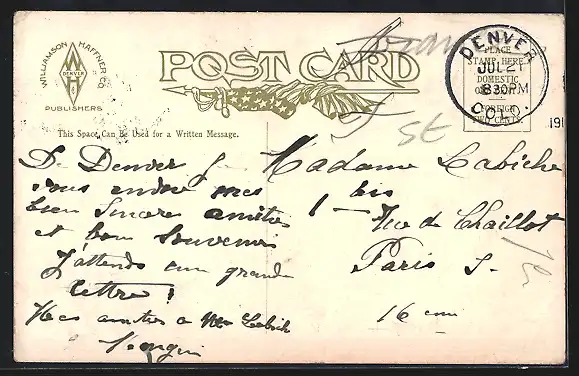 WILLIAMSON HAFFNER CO.
DENVER
PUBLISHERS
POST CARD
DENVER
JUL 21
8 30 PM
COLO.
PLACE
STAMP HERE
DOMESTIC
FOREIGN
TWO CENTS
191
This Space Can Be Used for a Written Message.
De Denver je
vous envoie mes
bien sincères amitiés
et bon Souvenir
J'attends une grande
lettre!
Mes amitiés a Mr Labiche
Madame Labiche
1 bis
Rue de Chaillot
Paris
16 eme